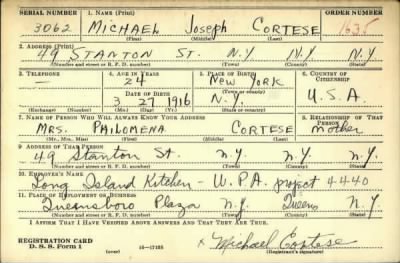 SERIAL NUMBER 1. NAME (Print) ORDER NUMBER
3062 MICHAEL Joseph CORTESE 1635
(First) (Middle) (Last)
2. ADDRESS (Print)
49 STANTON ST. N.Y N.Y N.Y
(Number and street or R. F. D. number) (Town) (County) (State)
3. TELEPHONE 4. AGE IN YEARS 5. PLACE OF BIRTH 6. COUNTRY OF CITIZENSHIP
— 24 New York
DATE OF BIRTH (Town or county)
3 27 1916 N.Y. U.S.A.
(Exchange) (Number) (Mo.) (Day) (Yr.) (State or country)
7. NAME OF PERSON WHO WILL ALWAYS KNOW YOUR ADDRESS 8. RELATIONSHIP OF THAT PERSON
MRS. PHILOMENA CORTESE mother
(Mr., Mrs., Miss) (First) (Middle) (Last)
9. ADDRESS OF THAT PERSON
49 Stanton St. N.Y. N.Y. N.Y.
(Number and street or R. F. D. number) (Town) (County) (State)
10. EMPLOYER'S NAME
Long Island Kitchen - W.P.A. project 4440
11. PLACE OF EMPLOYMENT OR BUSINESS
Queensboro Plaza N.Y. Queens N.Y.
(Number and street or R. F. D. number) (Town) (County) (State)
I AFFIRM THAT I HAVE VERIFIED ABOVE ANSWERS AND THAT THEY ARE TRUE.
REGISTRATION CARD
D. S. S. Form 1 (over) 16—17105 x Michael Cortese
(Registrant's signature)